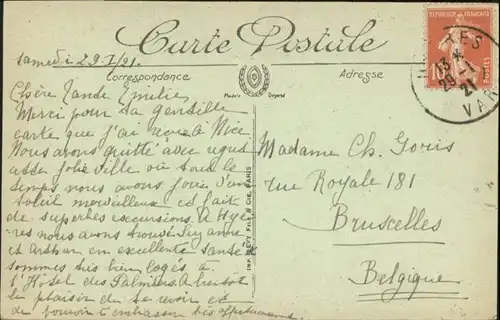 Carte Postale
Correspondance
Adresse
Samedi 29-1/21.
Chère Tante Emilie
Merci pour ta gentille
carte que j'ai reçue à Nice
Nous avons quitté avec
cette jolie ville où tout le
temps nous avons joui d'un
soleil merveilleux et fait
de superbes excursions. A Hyè
res nous avons trouvé Suzanne
et Arthur en excellente santé et
sommes très bien logés à
l'Hôtel des Palmiers. A bientôt
le plaisir de te revoir et
de pouvoir t'embrasser très affectueusement
Madame Ch. Goris
rue Royale 181
Bruxelles
Belgique
IMP. LEVY FILS & CIE, PARIS
REPUBLIQUE FRANÇAISE
10
POSTES
13
29 -1
21
VAR